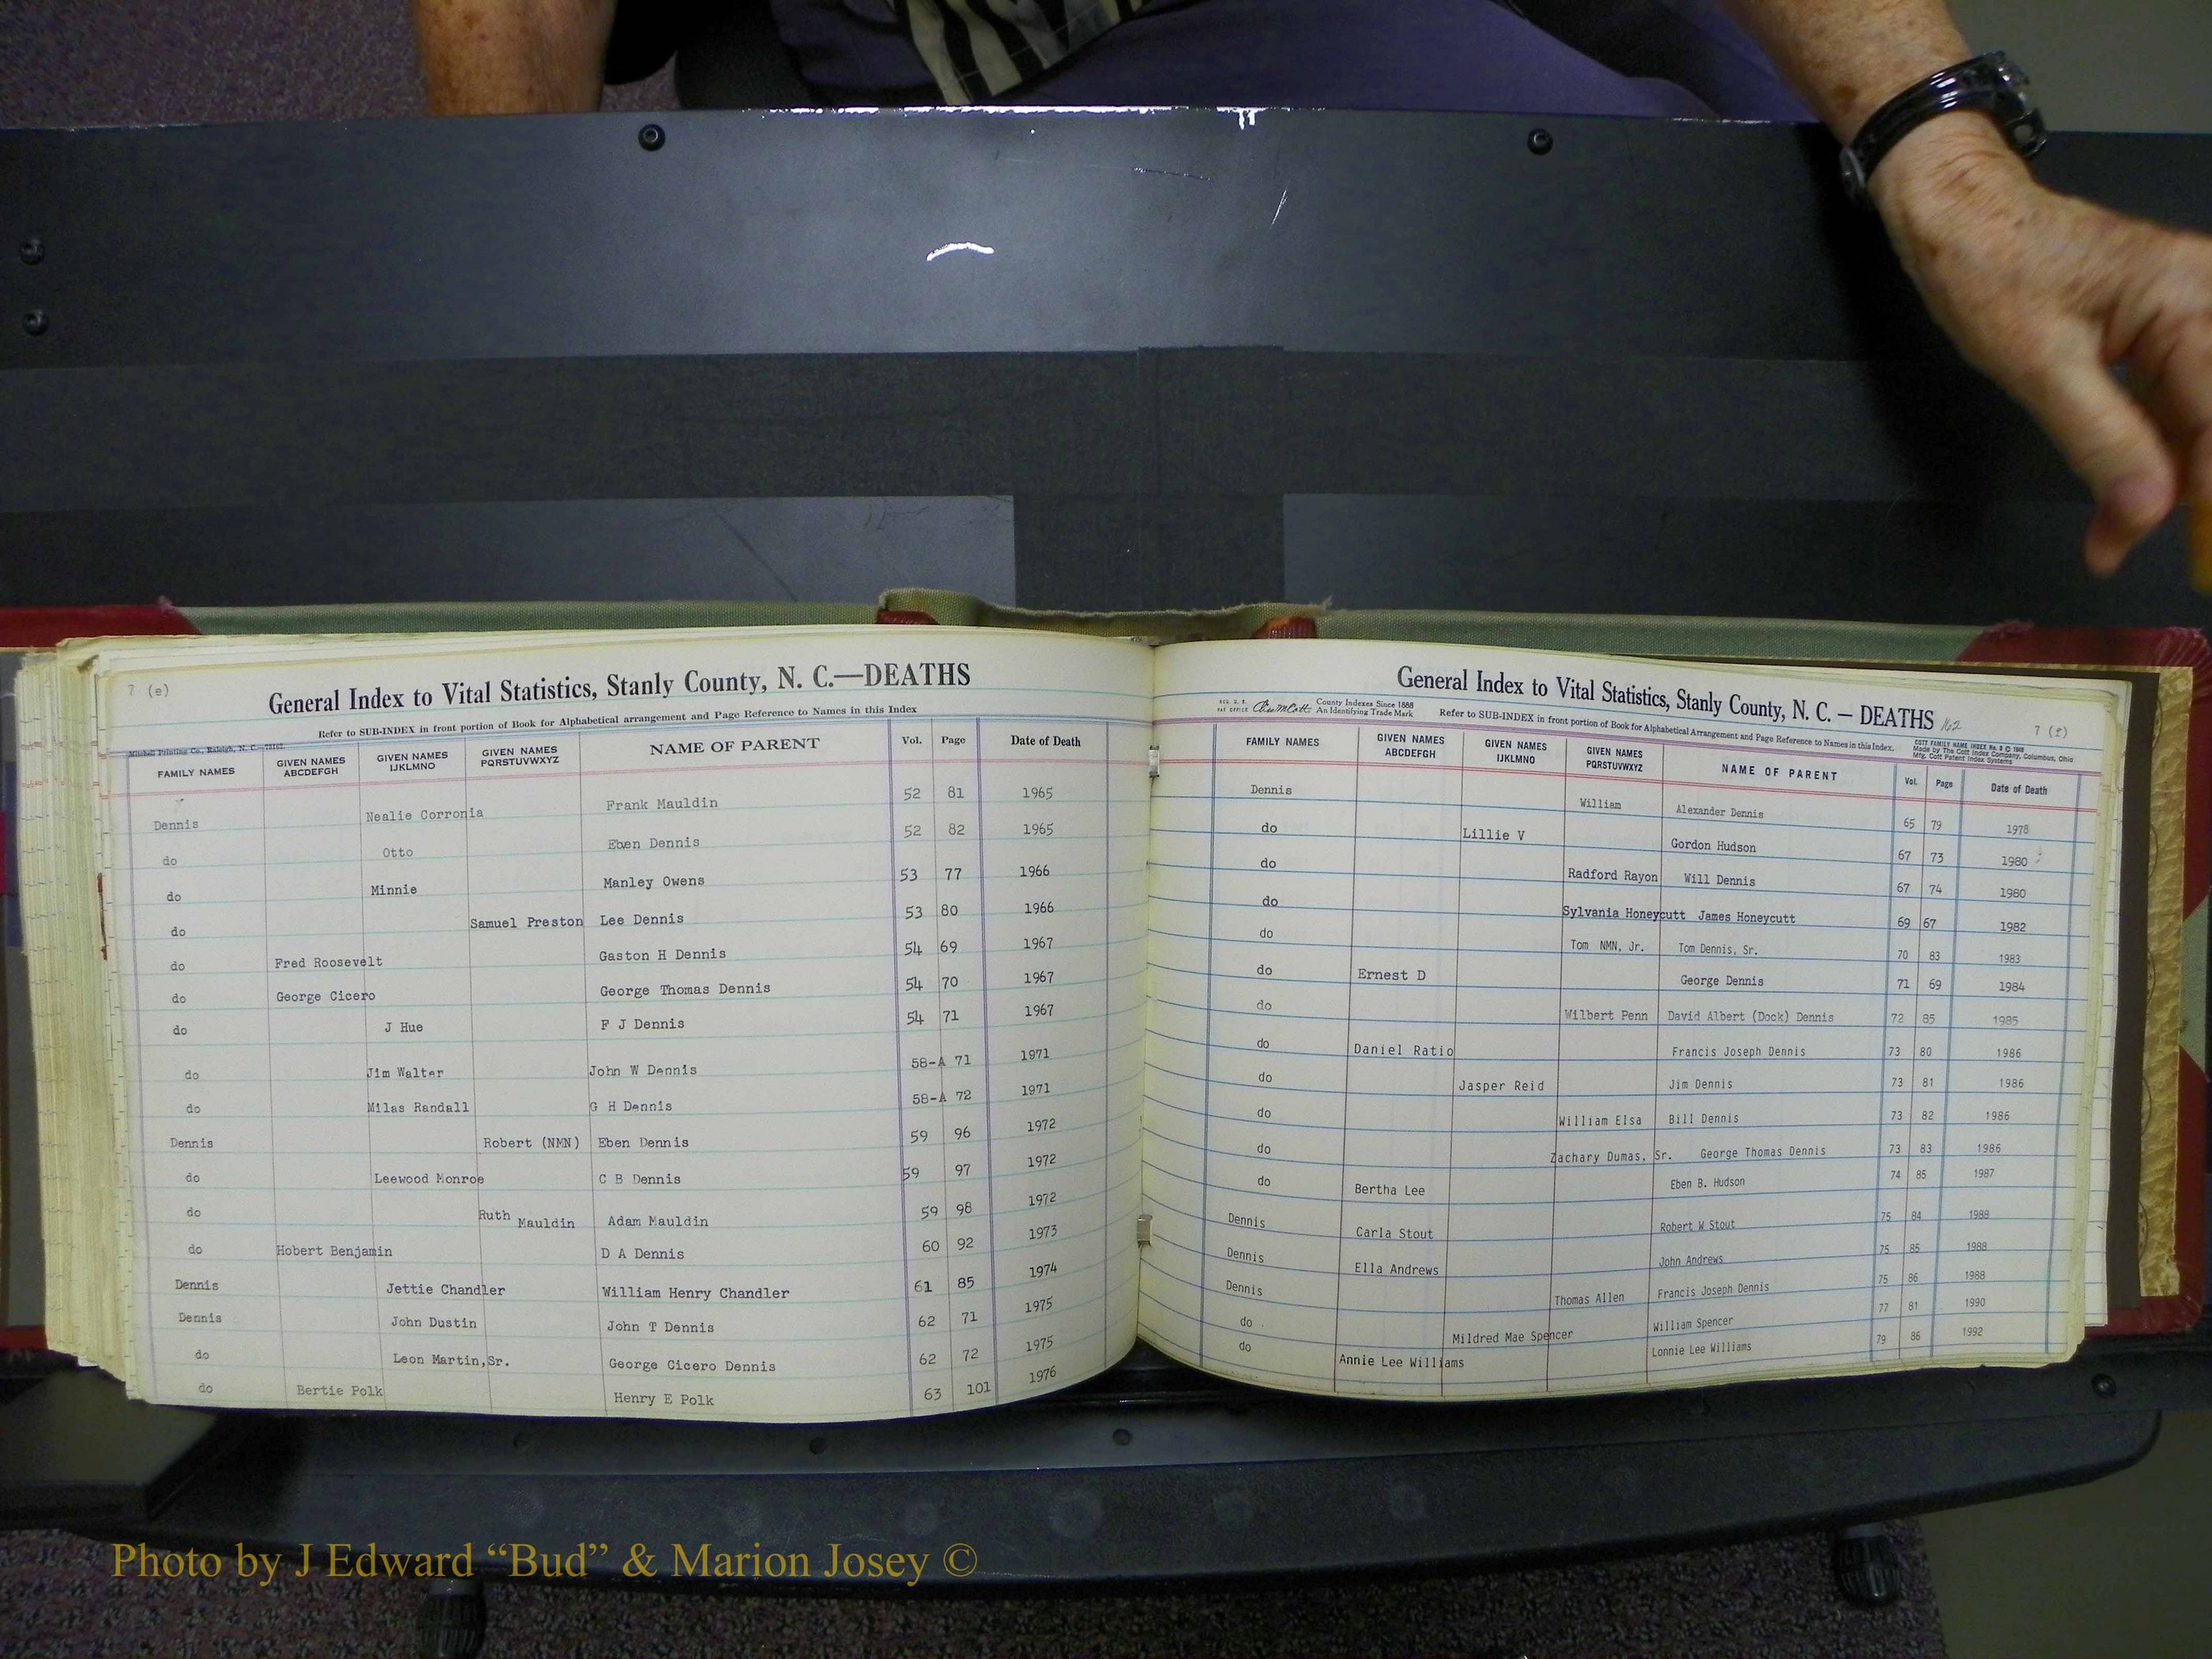 7 (e)
General Index to Vital Statistics, Stanly County, N. C.—DEATHS
Refer to SUB-INDEX in front portion of Book for Alphabetical arrangement and Page Reference to Names in this Index
Mitchell Printing Co., Raleigh, N. C.
FAMILY NAMES GIVEN NAMES ABCDEFGH GIVEN NAMES IJKLMNO GIVEN NAMES PQRSTUVWXYZ NAME OF PARENT Vol. Page Date of Death
Dennis Nealie Corronia Frank Mauldin 52 81 1965
do Otto Eben Dennis 52 82 1965
do Minnie Manley Owens 53 77 1966
do Samuel Preston Lee Dennis 53 80 1966
do Fred Roosevelt Gaston H Dennis 54 69 1967
do George Cicero George Thomas Dennis 54 70 1967
do J Hue F J Dennis 54 71 1967
do Jim Walter John W Dennis 58-A 71 1971
do Milas Randall G H Dennis 58-A 72 1971
Dennis Robert (NMN) Eben Dennis 59 96 1972
do Leewood Monroe C B Dennis 59 97 1972
do Ruth Mauldin Adam Mauldin 59 98 1972
do Hobert Benjamin D A Dennis 60 92 1973
Dennis Jettie Chandler William Henry Chandler 61 85 1974
Dennis John Dustin John T Dennis 62 71 1975
do Leon Martin,Sr. George Cicero Dennis 62 72 1975
do Bertie Polk Henry E Polk 63 101 1976
General Index to Vital Statistics, Stanly County, N. C. — DEATHS 162
7 (f)
REG. U. S. PAT OFFICE County Indexes Since 1888 An Identifying Trade Mark
Refer to SUB-INDEX in front portion of Book for Alphabetical Arrangement and Page Reference to Names in this Index.
COTT FAMILY NAME INDEX No. 8 © 1949
Made by The Cott Index Company, Columbus, Ohio
Mfg. Cott Patent Index Systems
FAMILY NAMES GIVEN NAMES ABCDEFGH GIVEN NAMES IJKLMNO GIVEN NAMES PQRSTUVWXYZ NAME OF PARENT Vol. Page Date of Death
Dennis William Alexander Dennis 65 79 1978
do Lillie V Gordon Hudson 67 73 1980
do Radford Rayon Will Dennis 67 74 1980
do Sylvania Honeycutt James Honeycutt 69 67 1982
do Tom NMN, Jr. Tom Dennis, Sr. 70 83 1983
do Ernest D George Dennis 71 69 1984
do Wilbert Penn David Albert (Dock) Dennis 72 85 1985
do Daniel Ratio Francis Joseph Dennis 73 80 1986
do Jasper Reid Jim Dennis 73 81 1986
do William Elsa Bill Dennis 73 82 1986
do Zachary Dumas, Sr. George Thomas Dennis 73 83 1986
do Bertha Lee Eben B. Hudson 74 85 1987
Dennis Carla Stout Robert W Stout 75 84 1988
Dennis Ella Andrews John Andrews 75 85 1988
Dennis Thomas Allen Francis Joseph Dennis 75 86 1988
do Mildred Mae Spencer William Spencer 77 81 1990
do Annie Lee Williams Lonnie Lee Williams 79 86 1992
Photo by J Edward “Bud” & Marion Josey ©